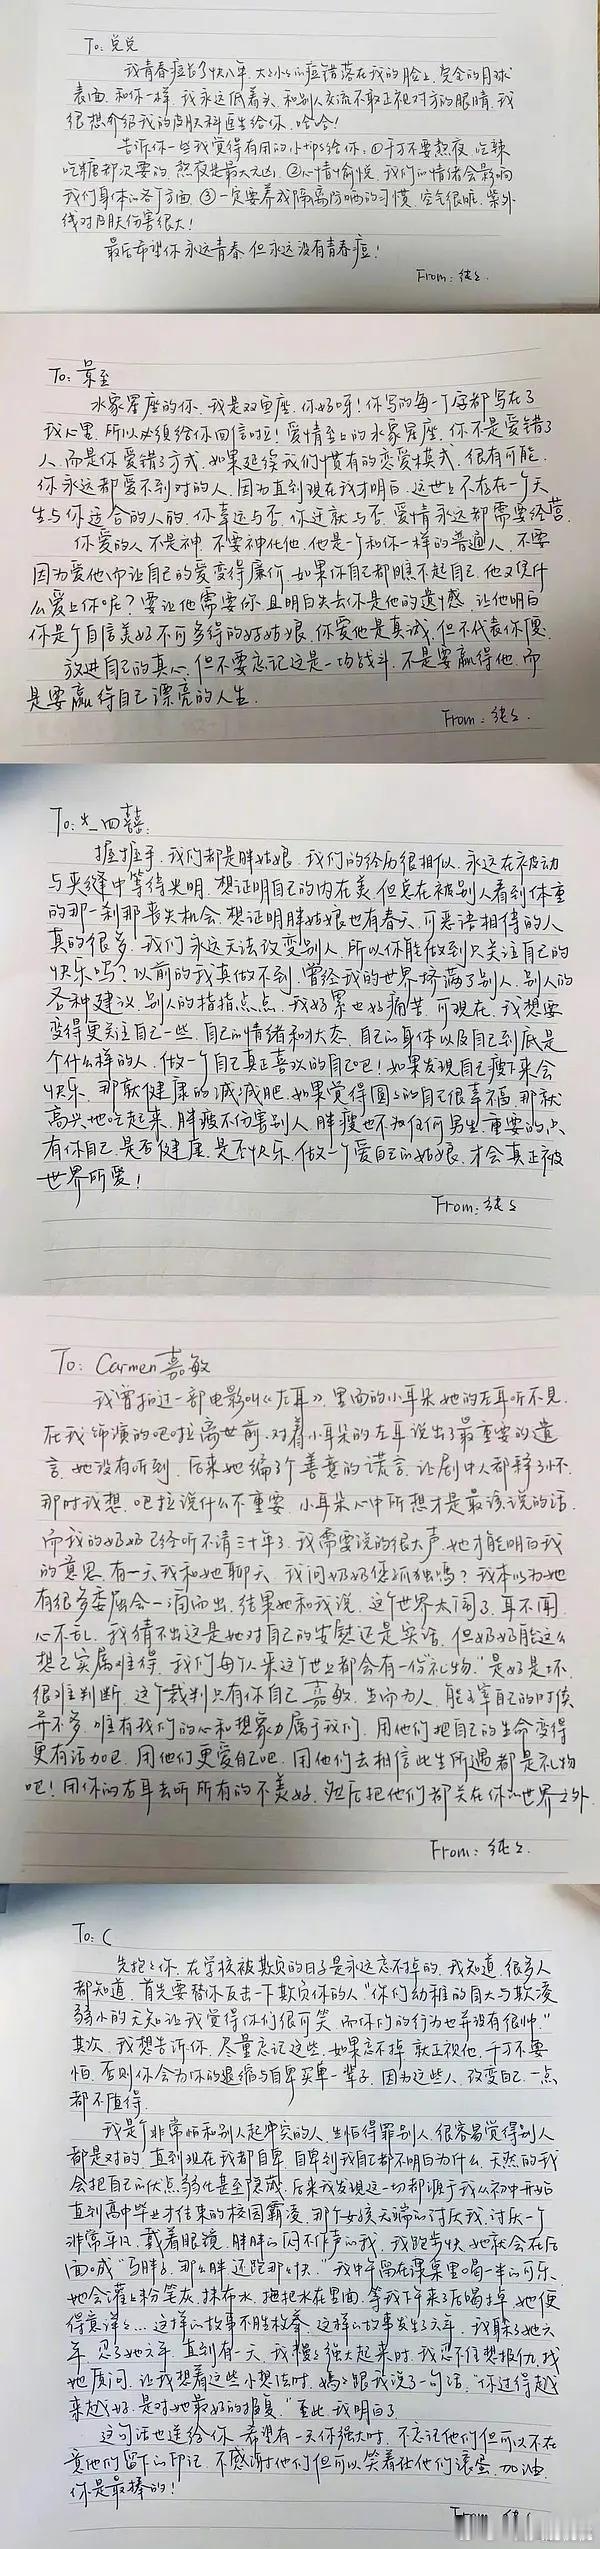 To: 兑兑
我青春痘长了快八年，大大小小的痘错落在我的脸上，完全的月球
表面，和你一样，我永远低着头，和别人交流不敢正视对方的眼睛，我
很想介绍我的皮肤科医生给你，哈哈！
告诉你一些我觉得有用的小tips给你：①千万不要熬夜，吃辣
吃糖都次要的，熬夜是最大元凶，②心情愉悦，我们的情绪会影响
我们身体的各个方面，③一定要养成隔离防晒的习惯，空气很脏，紫外
线对皮肤伤害很大！
最后希望你永远青春，但永远没有青春痘！
From: 纯纯.
To: 景至
水象星座的你，我是双鱼座，你好呀！你写的每一个字都写在了
我心里，所以必须给你回信啦！爱情至上的水象星座，你不是爱错了
人，而是你爱错了方式，如果延续我们惯有的恋爱模式，很有可能，
你永远都爱不到对的人，因为直到现在我才明白，这世上不存在一个天
生与你适合的人的，你幸运与否，你迁就与否，爱情永远都需要经营，
你爱的人，不是神，不要神化他，他是一个和你一样的普通人，不要
因为爱他而让自己的爱变得廉价，如果你自己都瞧不起自己，他又凭什
么爱上你呢？要让他需要你，且明白失去你是他的遗憾，让他明白
你是个自信美好不可多得的好姑娘，你爱他是真诚，但不代表你傻，
放进自己的真心，但不要忘记这是一场战斗，不是要赢得他，而
是要赢得自己漂亮的人生.
From: 纯纯.
To: 火_四囍:
握握手，我们都是胖姑娘，我们的经历很相似，永远在被动
与夹缝中等待光明，想证明自己的内在美，但总在被别人看到体重
的那一刹那丧失机会，想证明胖姑娘也有春天，可恶语相待的人
真的很多，我们永远无法改变别人，所以你能做到只关注自己的
快乐吗？以前的我真做不到，曾经我的世界挤满了别人，别人的
各种建议，别人的指指点点，我好累也好痛苦，可现在，我想要
变得更关注自己一些，自己的情绪和状态，自己的身体以及自己到底是
个什么样的人，做一个自己真正喜欢的自己吧！如果发现自己瘦下来会
快乐，那就健康的减减肥，如果觉得圆圆的自己很幸福，那就
高兴地吃起来，胖瘦不伤害别人，胖瘦也不为任何男生，重要的只
有你自己，是否健康，是否快乐，做一个爱自己的姑娘，才会真正被
世界所爱！
From: 纯纯
To: Carmen嘉敏
我曾拍过一部电影叫《左耳》，里面的小耳朵她的左耳听不见，
在我饰演的吧啦离世前，对着小耳朵的左耳说出了最重要的遗
言，她没有听到，后来她编了个善意的谎言，让剧中人都释了怀，
那时我想，吧啦说什么不重要，小耳朵心中所想才是最该说的话，
而我的奶奶已经听不清三十年了，我需要说的很大声，她才能明白我
的意思，有一天我和她聊天，我问奶奶您孤独吗？我本以为她
有很多委屈会一涌而出，结果她和我说，这个世界太闹了，耳不闻，
心不乱，我猜不出这是她对自己的安慰还是实话，但奶奶能这么
想已实属难得，我们每个人来这个世上都会有一份“礼物”是好是坏，
很难判断，这个裁判只有你自己，嘉敏，生而为人，能主宰自己的时候
并不多，唯有我们的心和想象力属于我们，用他们把自己的生命变得
更有活力吧，用他们更爱自己吧，用他们去相信此生所遇都是礼物
吧！用你的右耳去听所有的不美好，然后把他们都关在你的世界之外.
From: 纯纯.
To: C
先抱抱你，在学校被欺负的日子是永远忘不掉的，我知道，很多人
都知道，首先要替你反击一下欺负你的人“你们幼稚的自大与欺凌
弱小的无知让我觉得你们很可笑，而你们的行为也并没有很帅.”
其次，我想告诉你，尽量忘记这些，如果忘不掉，就正视他，千万不要
怕，否则你会为你的退缩与自卑买单一辈子，因为这些人，改变自己，一点
都不值得.
我是个非常怕和别人起冲突的人，生怕得罪别人，很容易觉得别人
都是对的，直到现在我都自卑，自卑到我自己都不明白为什么，天然的我
会把自己的优点弱化甚至隐藏，后来我发现这一切都源于我从初中开始
直到高中毕业才结束的校园霸凌，那个女孩无端的讨厌我，讨厌一个
非常平凡，戴着眼镜，胖胖的闷不作声的我，我跑步快，她就会在后
面喊“马胖子，那么胖还跑那么快.”我中午留在课桌里喝一半的可乐，
她会灌上粉笔灰，抹布水，拖把水在里面，等我下午来了后喝掉，她便
得意洋洋...这样的故事不胜枚举，这样的故事发生了六年，我躲了她六
年，忍了她六年，直到有一天，我慢慢强大起来时，我忍不住想报仇，找
她质问，让我想着这些小想法时，妈妈跟我说了一句话，“你过得越
来越好，是对她最好的报复.”至此，我明白了.
这句话也送给你，希望有一天你强大时，不忘记他们但可以不在
意他们留下的印记，不感谢他们但可以笑着让他们滚蛋，加油，
你是最棒的！
From 纯纯